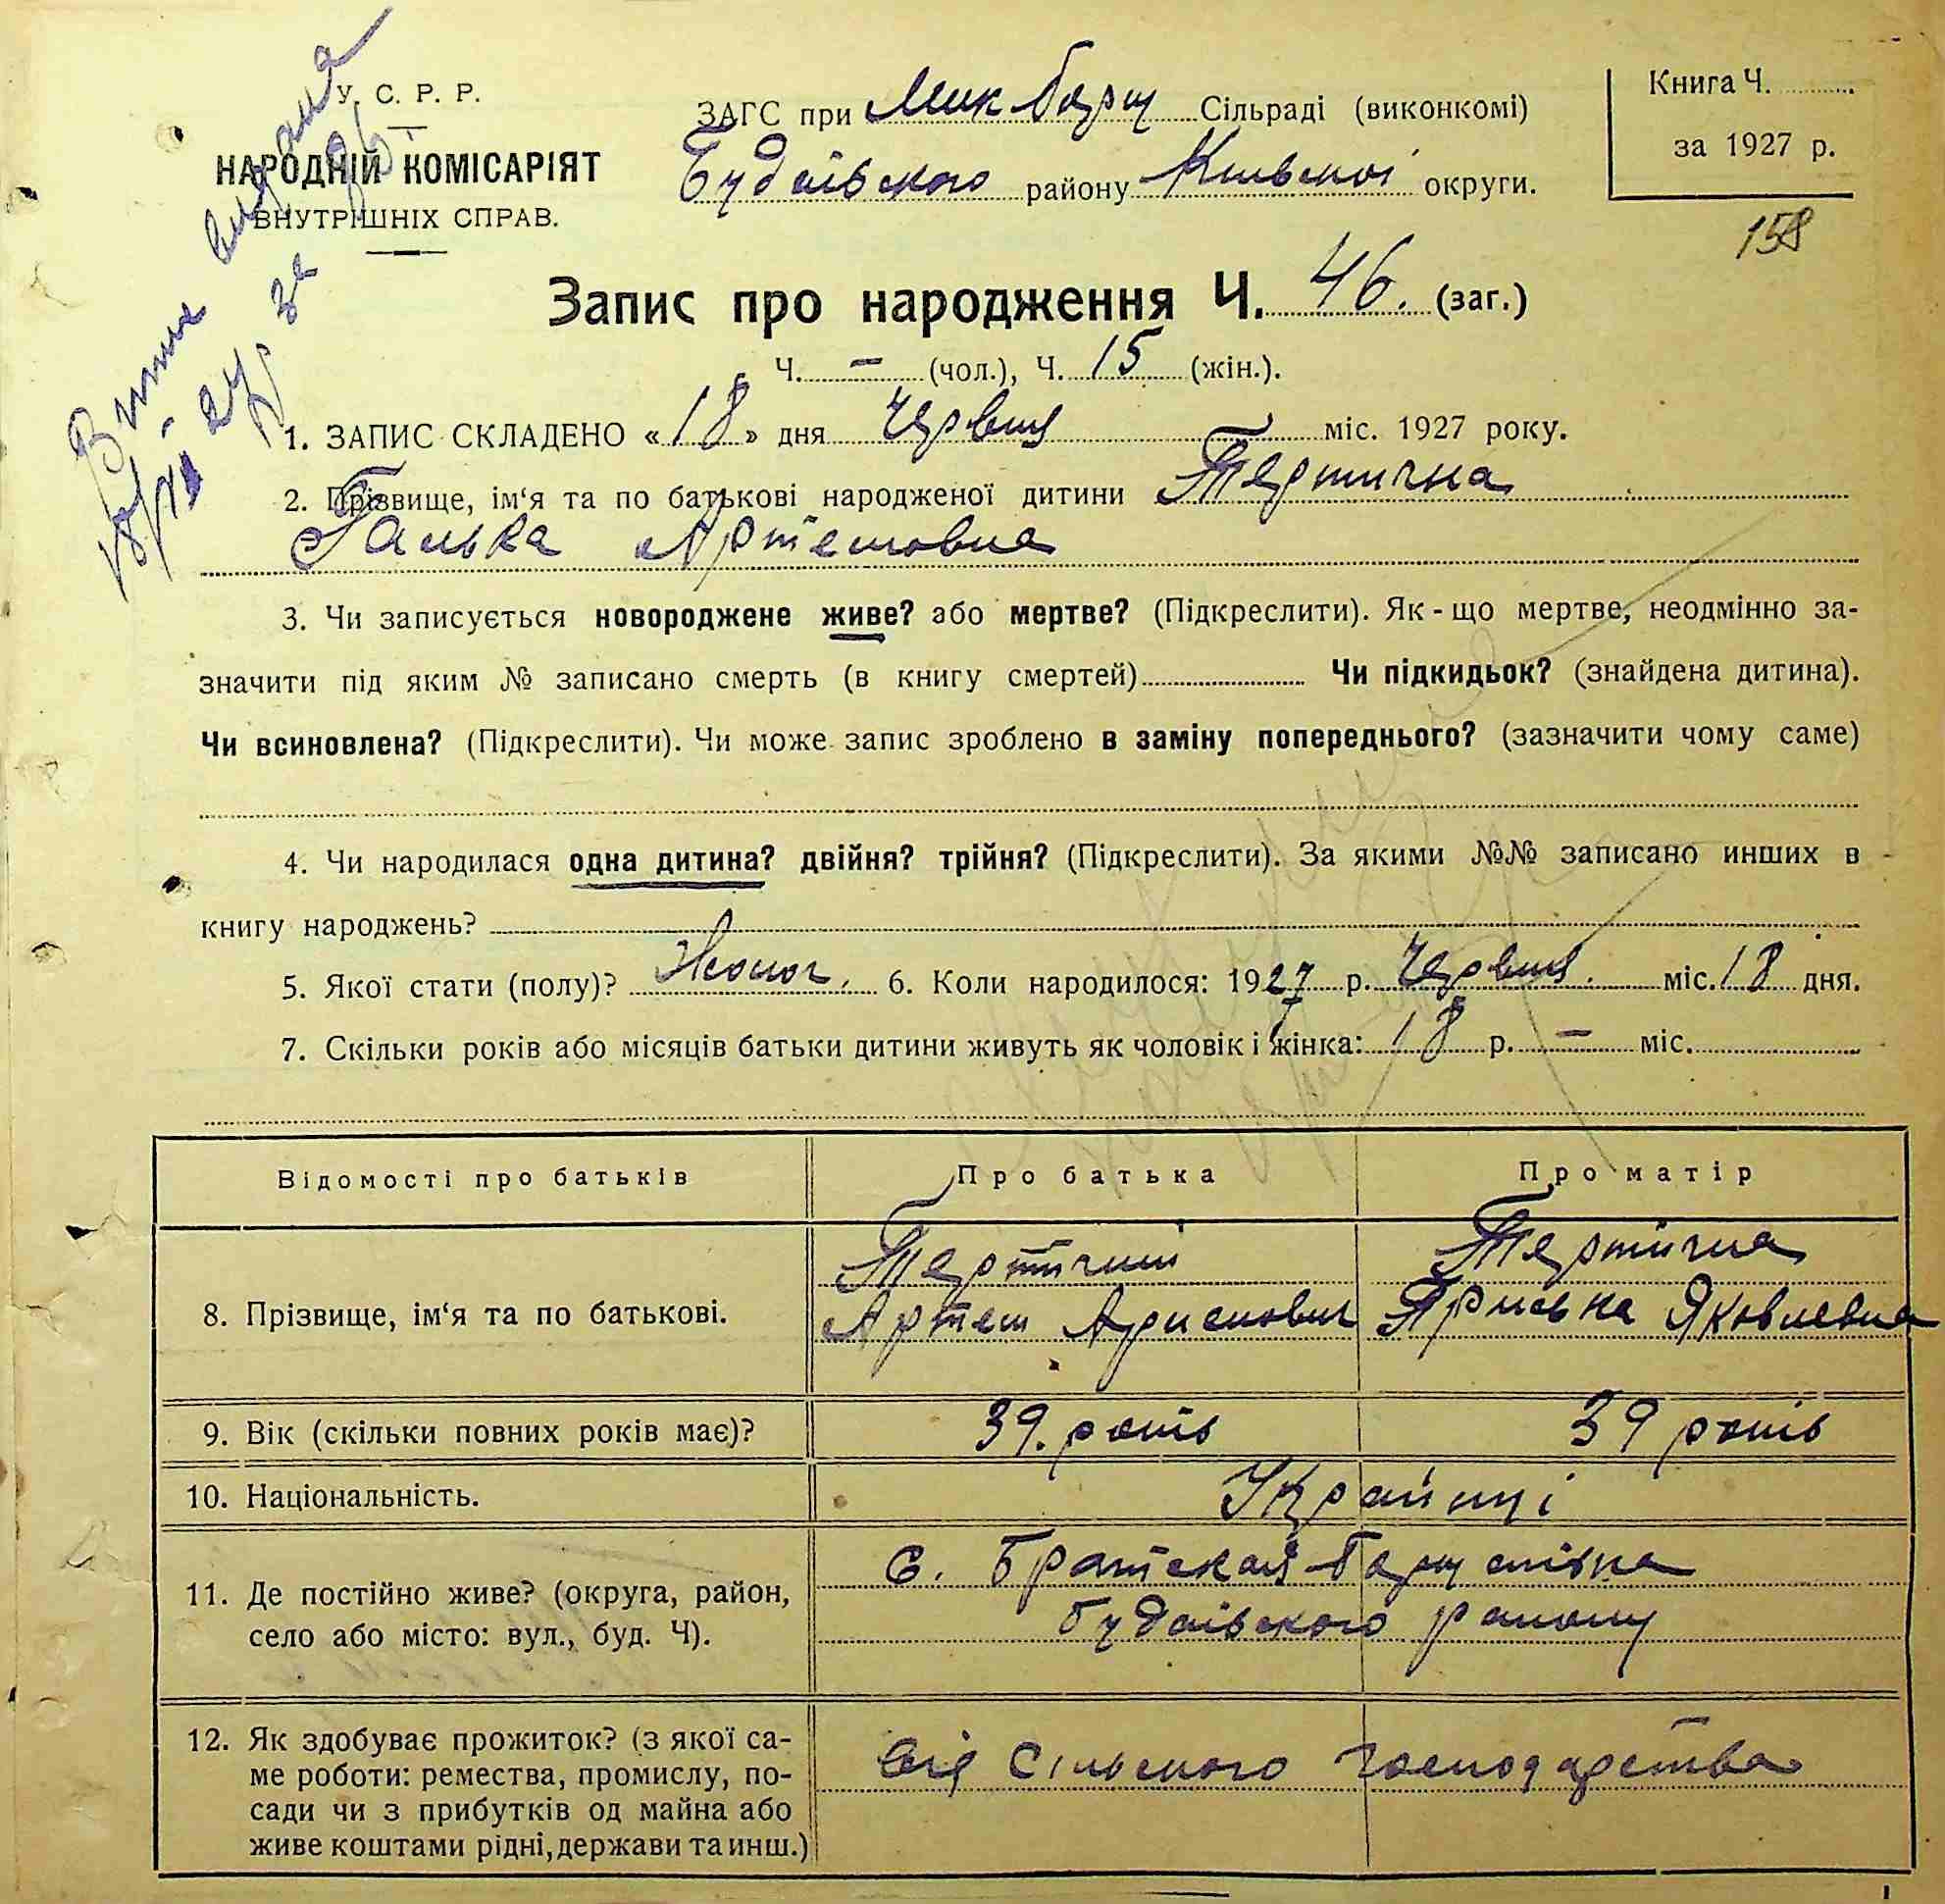 У. С. Р. Р.
НАРОДНІЙ КОМІСАРІЯТ
ВНУТРІШНІХ СПРАВ.
ЗАГС при Мик Борщ Сільраді (виконкомі)
Будаївського району Київської округи.
Книга Ч. ...........
за 1927 р.
158
Запис про народження Ч. 46. (заг.)
Ч. — (чол.), Ч. 15 (жін.).
1. ЗАПИС СКЛАДЕНО « 18 » дня Червня міс. 1927 року.
2. Прізвище, ім‘я та по батькові народженої дитини Тертична
Галька Артемовна
3. Чи записується новороджене живе? або мертве? (Підкреслити). Як - що мертве, неодмінно за-
значити під яким № записано смерть (в книгу смертей) Чи підкидьок? (знайдена дитина).
Чи всиновлена? (Підкреслити). Чи може запис зроблено в заміну попереднього? (зазначити чому саме)
4. Чи народилася одна дитина? двійня? трійня? (Підкреслити). За якими №№ записано инших в
книгу народжень?
5. Якої стати (полу)? Жоноч. 6. Коли народилося: 1927 р. Червня. міс. 18 дня.
7. Скільки років або місяців батьки дитини живуть як чоловік і жінка: 18 р. — міс.
Відомості про батьків Про батька Про матір
8. Прізвище, ім‘я та по батькові.
Тертичний
Артем
Тертична
Яковлевна
9. Вік (скільки повних років має)? 39. років 39 років
10. Національність. Українці
11. Де постійно живе? (округа, район,
село або місто: вул., буд. Ч).
с. Братская-Борщагівка
Будаївського району
12. Як здобуває прожиток? (з якої са-
ме роботи: ремества, промислу, по-
сади чи з прибутків од майна або
живе коштами рідні, держави та инш.)
від сільського господарства